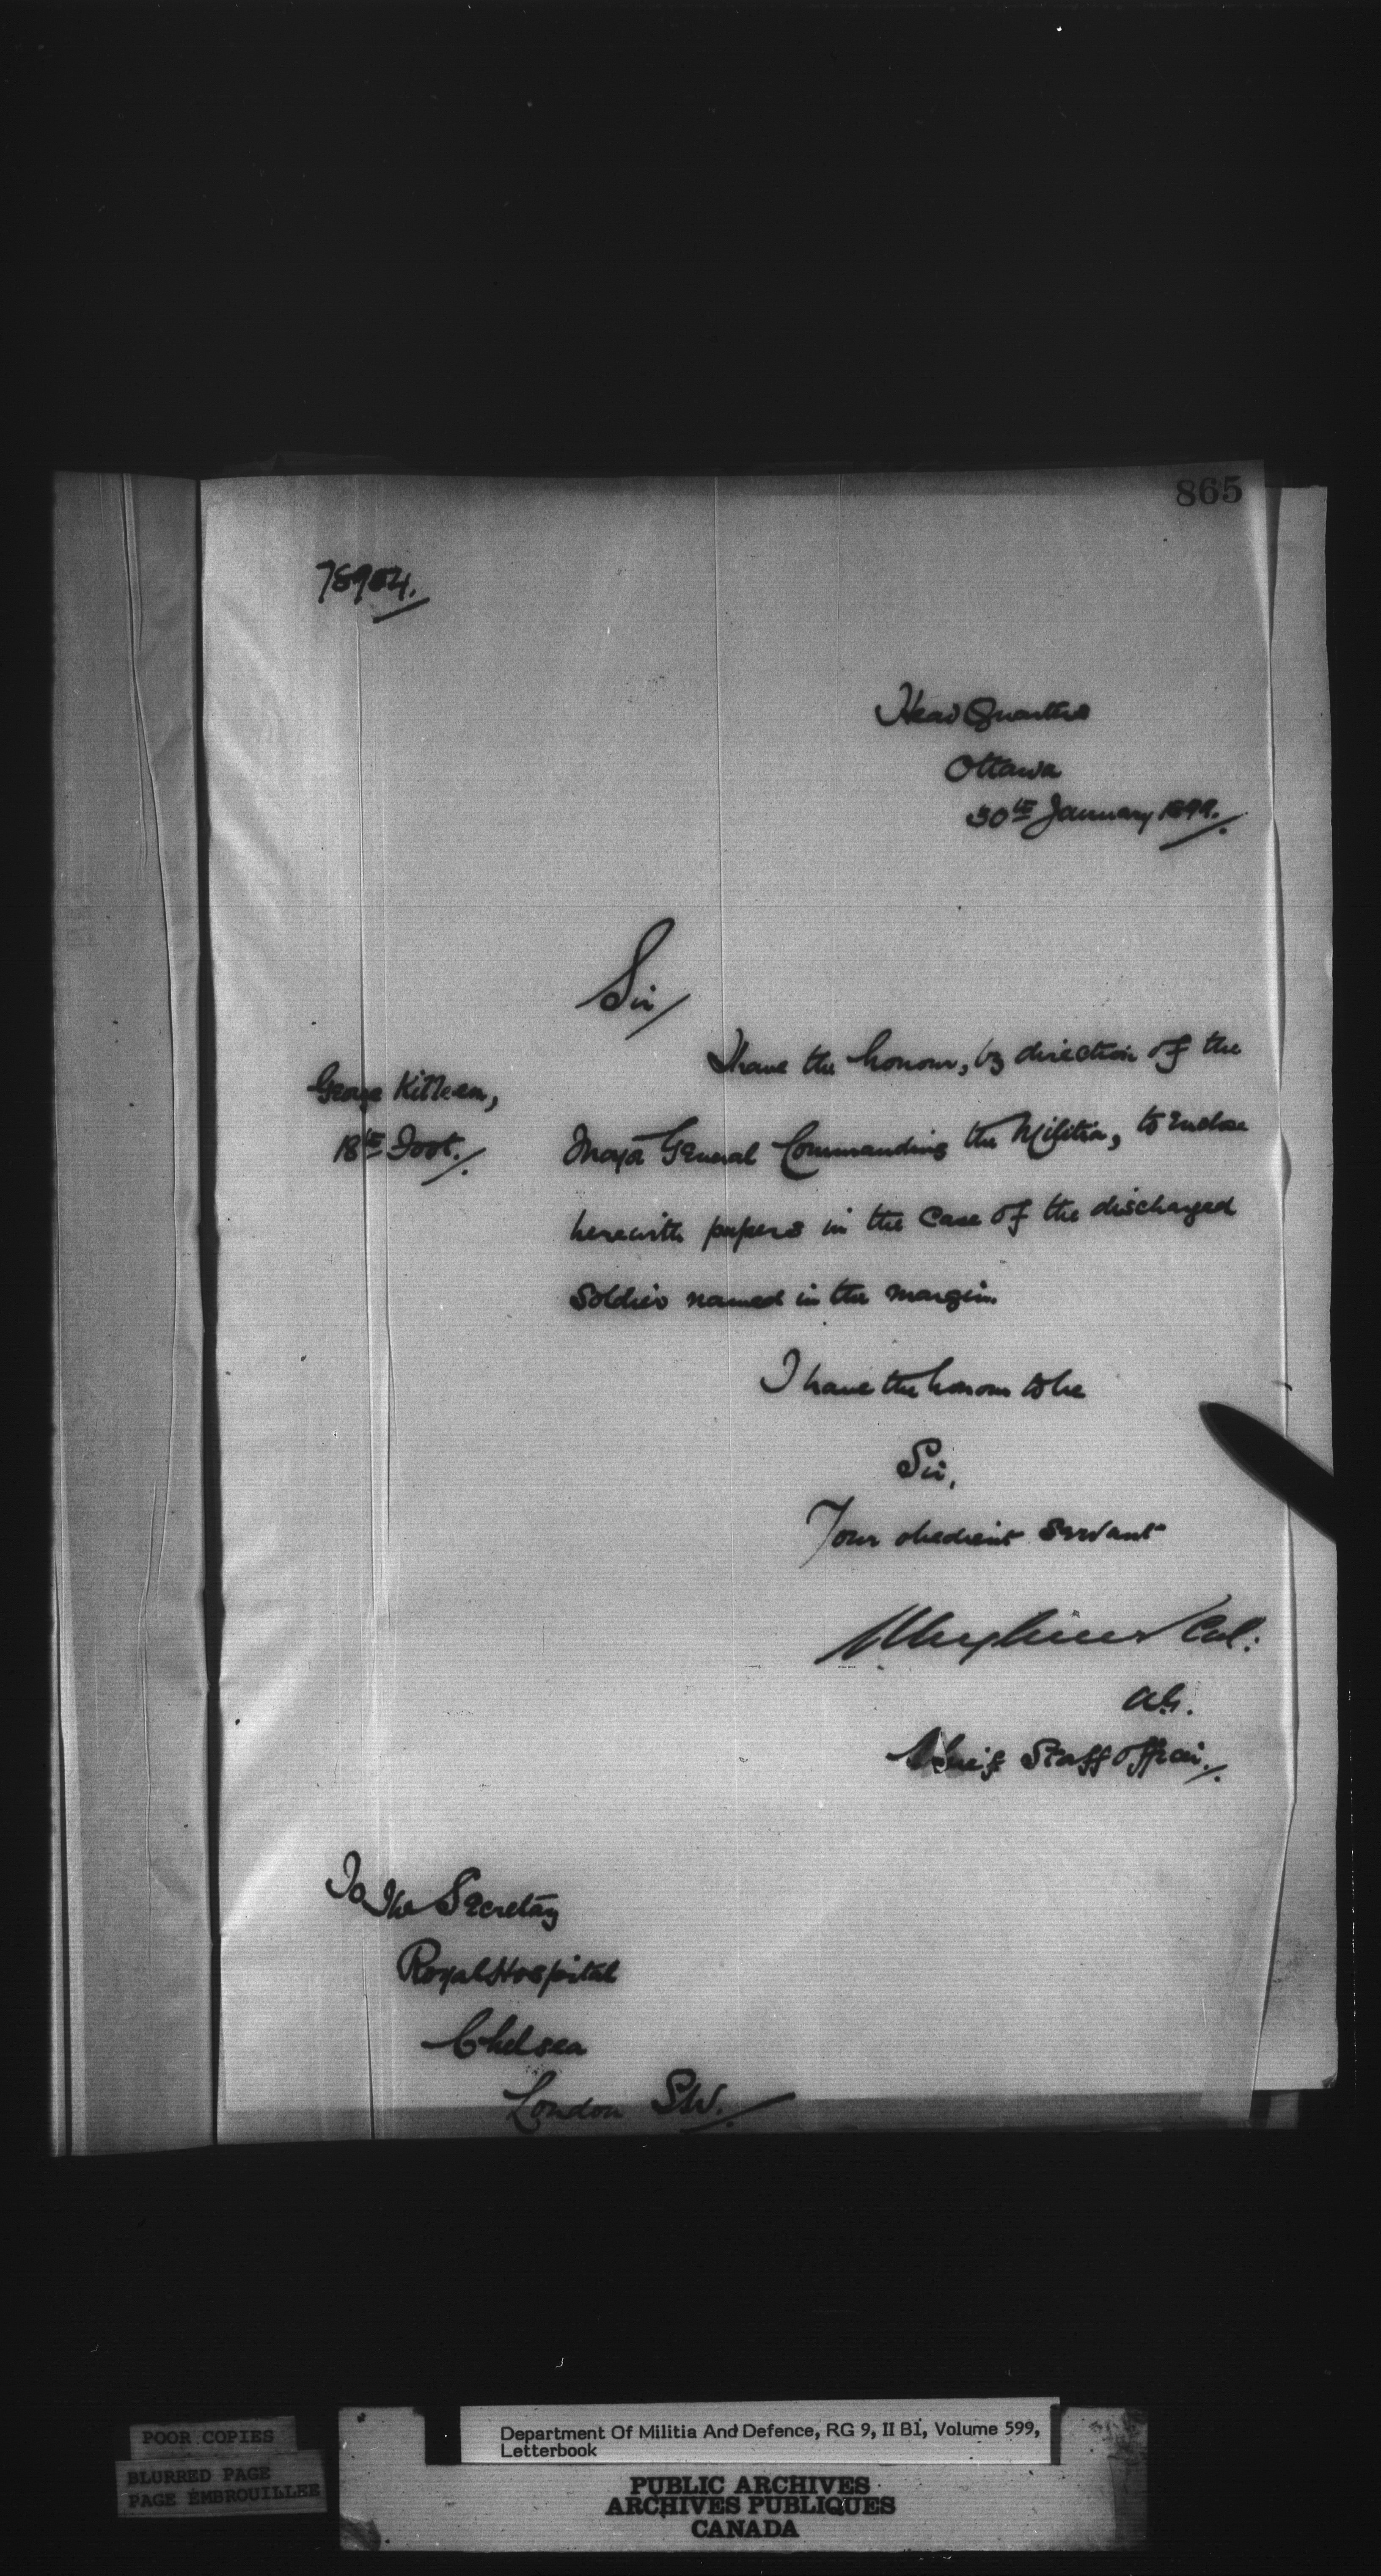 865
78904.
Head Quarters
Ottawa
30th January 1899.
Sir
I have the honour, by direction of the
George Killeen,
18th Foot.
Major General Commanding the Militia, to enclose
herewith papers in the case of the discharged
Soldier named in the margin.
I have the honour to be
Sir,
Your obedient Servant
Col:
AG.
Chief Staff Officer.
To The Secretary
Royal Hospital
Chelsea
London S.W.
POOR COPIES
BLURRED PAGE
PAGE EMBROUILLEE
Department Of Militia And Defence, RG 9, II B1, Volume 599,
Letterbook
PUBLIC ARCHIVES
ARCHIVES PUBLIQUES
CANADA